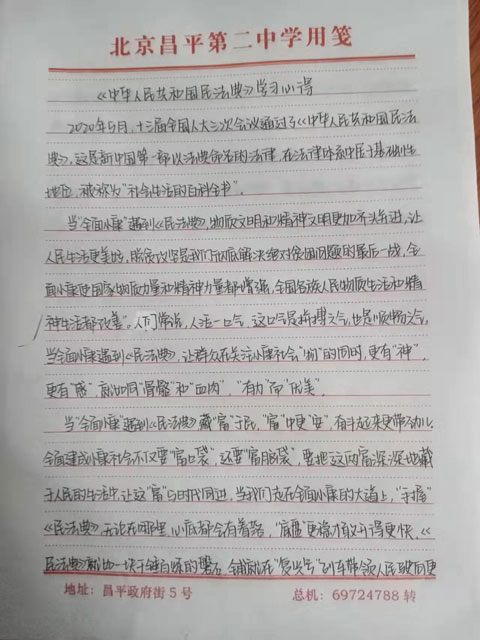 北京昌平第二中学用笺
《中华人民共和国民法典》学习心得
2020年5月,十三届全国人大三次会议通过了《中华人民共和国民法
典》,这是新中国第一部以法典命名的法律,在法律体系中居于基础性
地位,被称为"社会生活的百科全书"。
当"全面小康"遇到《民法典》,物质文明和精神文明更加齐头并进,让
人民生活更美好,脱贫攻坚是我们彻底解决绝对贫困问题的最后一战,全
面小康使国家物质力量和精神力量都增强,全国各族人民物质生活和精
神生活都改善"。人们常说,人活一口气,这口气是拼搏之气,也是顺畅之气,
当全面小康遇到《民法典》,让群众在关注小康社会"物"的同时,更有"神",
更有"感",就如同"骨骼"和"血肉","有力"而"优美"。
当"全面小康"遇到《民法典》藏"富"于民,"富"中更"安",奋斗起来更带劲儿,
全面建成小康社会不仅要"富口袋",还要"富脑袋",要把这两富深深地藏
于人民的生活中,让这"富"与时代同进,当我们走在全面小康的大道上,"手握"
《民法典》无论在哪里,心底都会有着落,"底盘"更稳才有义开得更快,《
民法典》就如一块千锤百炼的磐石,铺就在"复兴号"列车带领人民驶向更
地址:昌平政府街5号
总机:69724788转